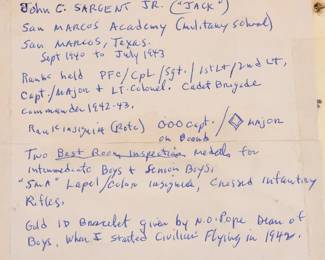 John C. SARGENT JR. ("JACK")
SAN MARCOS Academy (military school)
SAN MARCOS, Texas.
Sept 1940 to July 1943
Ranks held PFC/Cpl/Sgt./1st Lt/2nd LT,
Capt./Major & LT. Colonel. Cadet Brigade
commander 1942-43.
Rank insignia (Rotc) OOO Capt. / ◇ Major
on Board
Two Best Room Inspection Medals for
Intermediate Boys & Senior Boys.
"SMA" Lapel/Collar insignia, Crossed Infantry
Rifles.
Gold ID Bracelet given by N.O. Pope Dean of
Boys, When I started Civilian Flying in 1942.